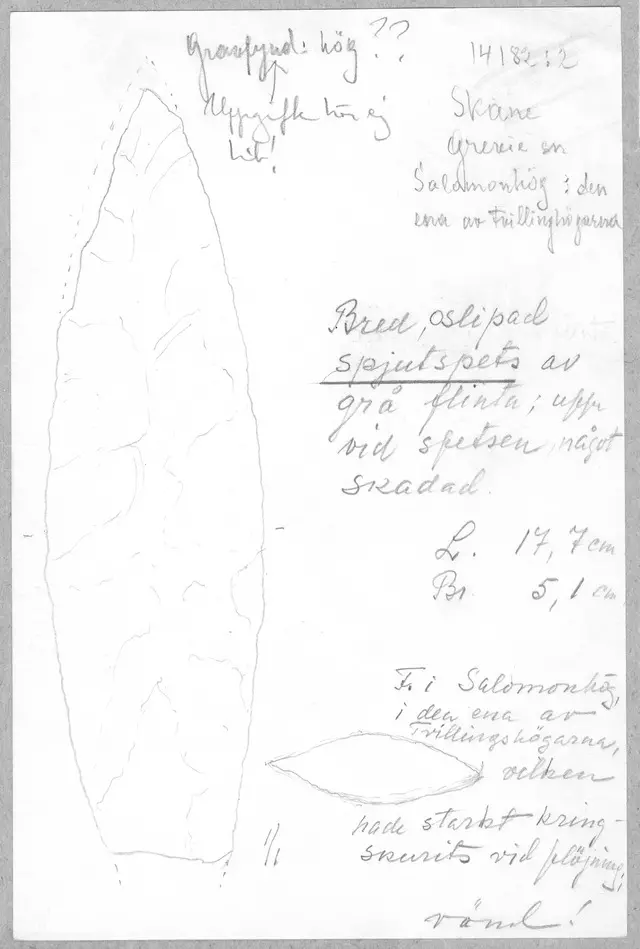 Gravfynd: hög ??
Uppgift hör ej
hit!
14182:2
Skåne
Grevie sn
Salomonhög: den
ena av Tvillinghögarna
Bred, oslipad
spjutspets av
grå flinta; uppe
vid spetsen något
skadad.
L. 17,7 cm
Br. 5,1 cm
F. i Salomonhög,
i den ena av
Tvillingshögarna,
vilken
hade starkt kring-
skurits vid plöjning,
1/1
vänd!